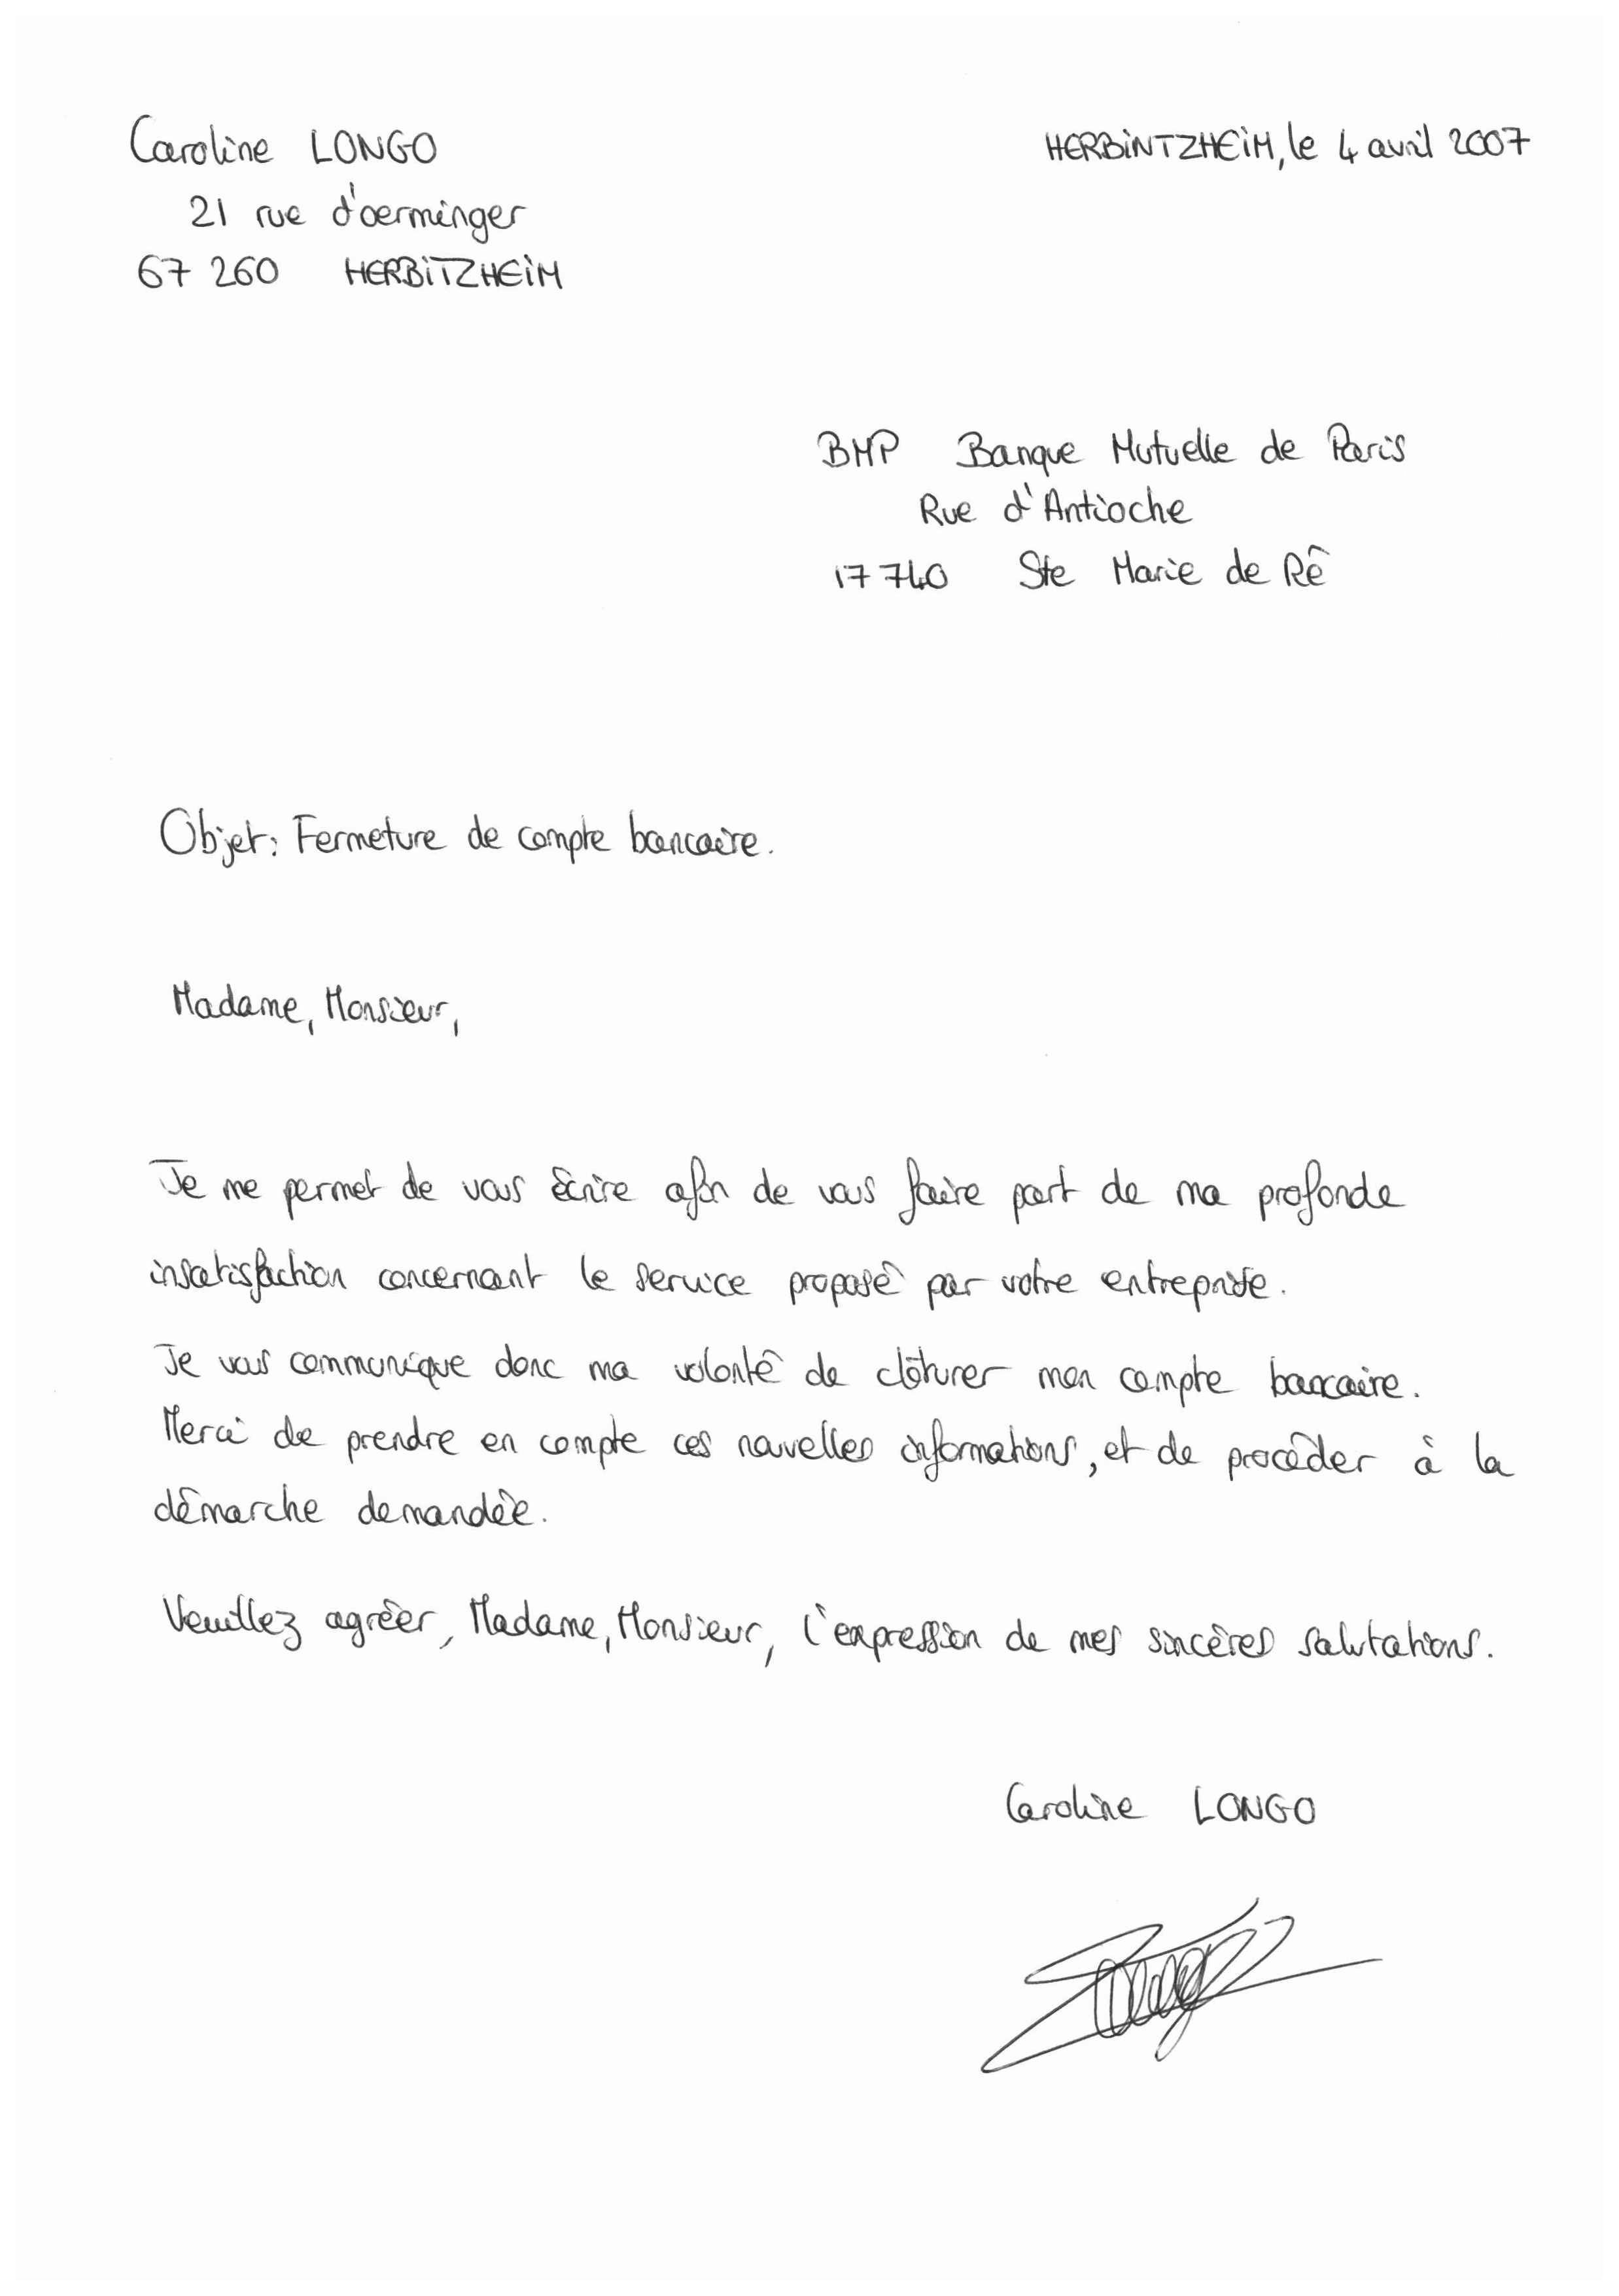 Caroline LONGO
HERBINTZHEIM, le 4 avril 2007
21 rue d'oerminger
67 260 HERBITZHEIM
BMP Banque Mutuelle de Paris
Rue d'Antioche
17 740 Ste Marie de Ré
Objet: Fermeture de compte bancaire.
Madame, Monsieur,
Je me permet de vous écrire afin de vous faire part de ma profonde
insatisfaction concernant le service proposé par votre entreprise.
Je vous communique donc ma volonté de clôturer mon compte bancaire.
Merci de prendre en compte ces nouvelles informations, et de procéder à la
démarche demandée.
Veuillez agréer, Madame, Monsieur, l'expression de mes sincères salutations.
Caroline LONGO